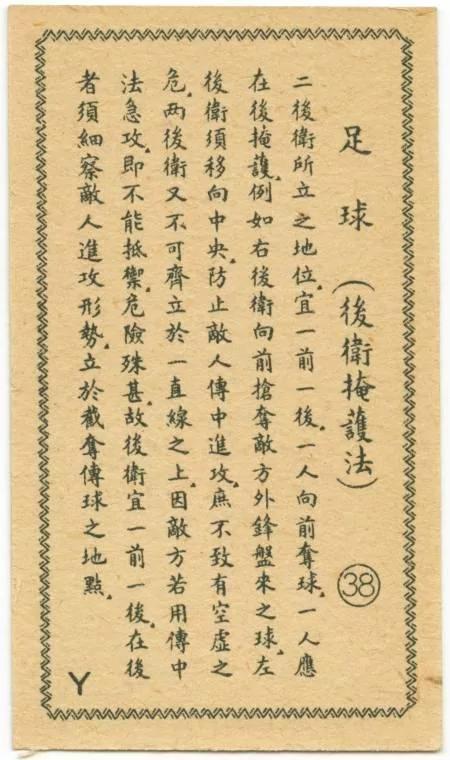 足球(後衛掩護法)㊳
二後衛所立之地位、宜一前一後、一人向前奪球、一人應
在後掩護、例如右後衛向前搶奪敵方外鋒盤來之球、左
後衛須移向中央、防止敵人傳中進攻、庶不致有空虛之
危、两後衛又不可齊立於一直線之上、因敵方若用傳中
法急攻、即不能抵禦、危險殊甚、故後衛宜一前一後、在後
者須細察敵人進攻形勢、立於截奪傳球之地點、
Y